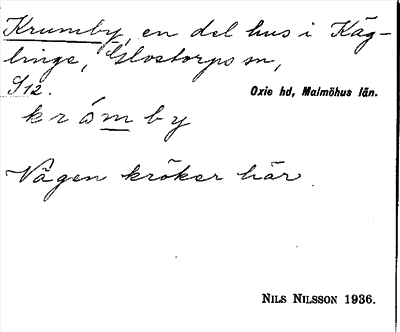 Krumby, en del hus i Käg-
linge, Glostorps sn,
S/12. Oxie hd, Malmöhus län.
krómby
Vägen kröker här.
NILS NILSSON 1936.